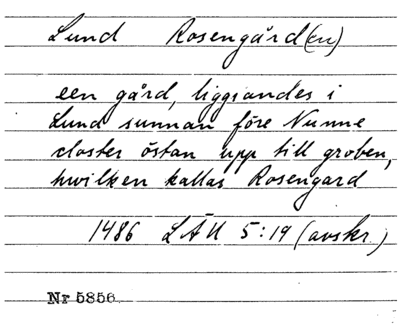 Lund Rosengård(en)
een gård, liggiandes i
Lund sunnan före Nunne
closter östan upp till groben,
hwilken kallas Rosengard
1486 LÄU 5:19 (avskr.)
Nr 5856